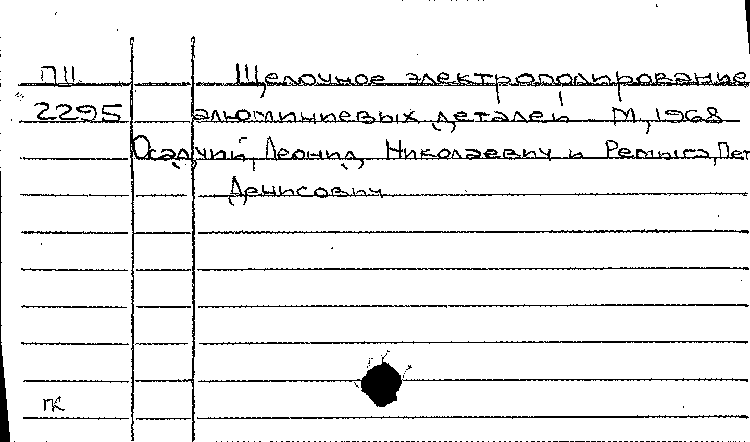 ПII Щелочное электрополирование
2295 алюминиевых деталей М, 1968
Осадчий, Леонид Николаевич и Ремыга, Пет
Денисович
ГК